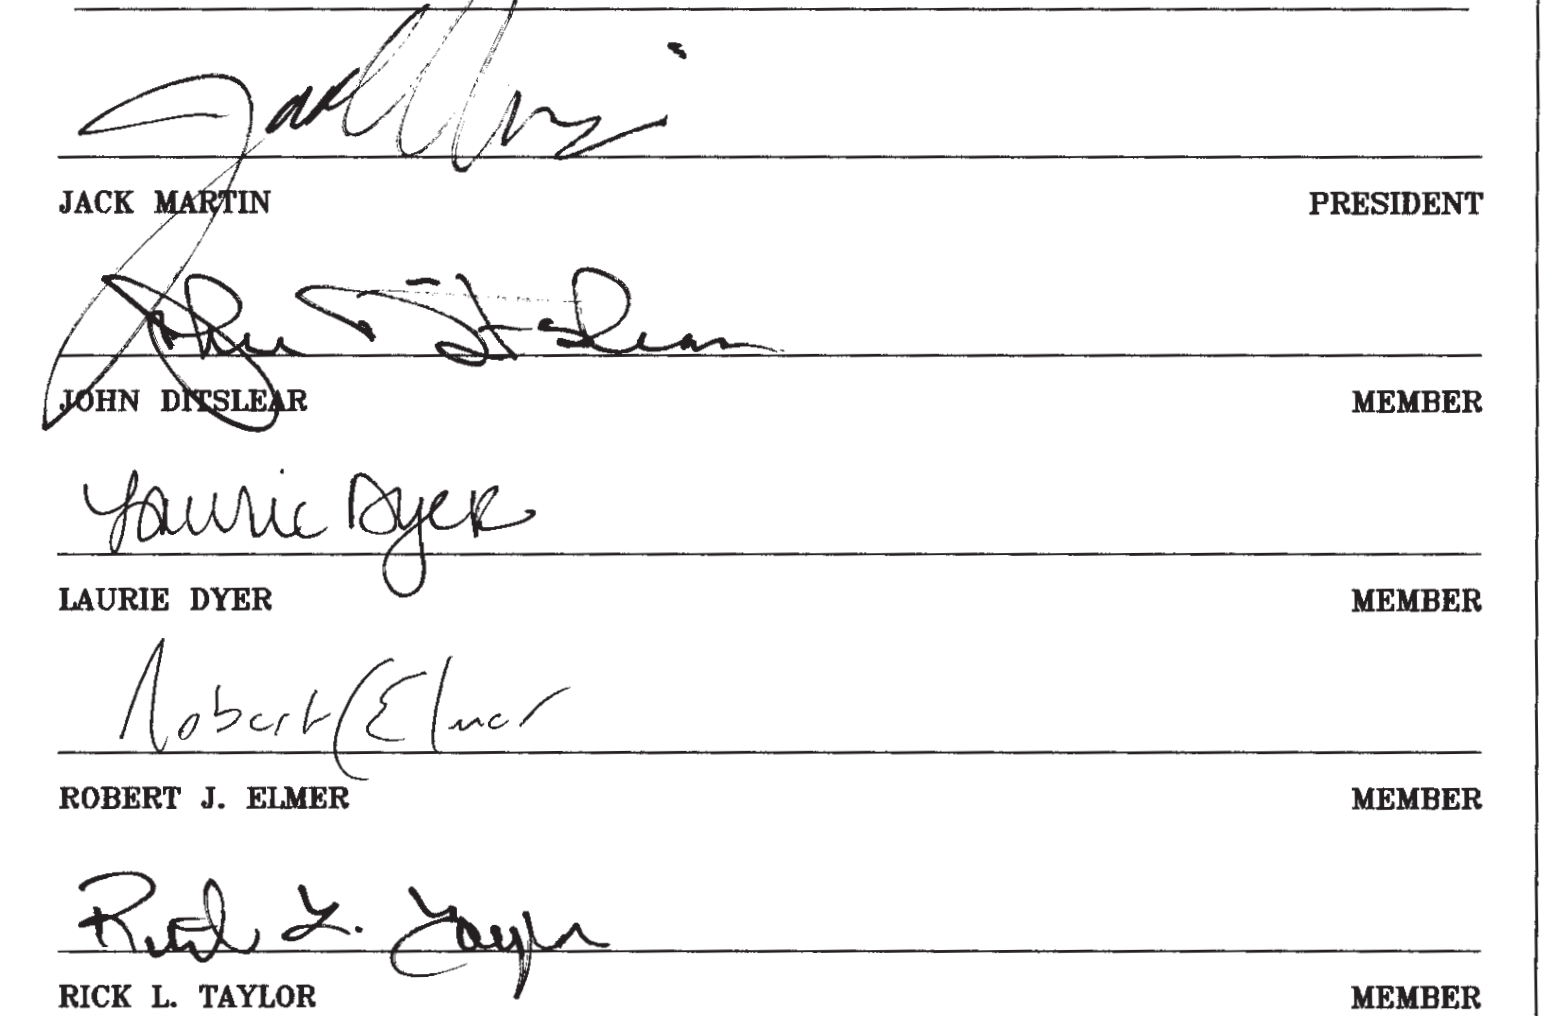 Jack Martin
JACK MARTIN PRESIDENT
John Ditslear
JOHN DITSLEAR MEMBER
Laurie Dyer
LAURIE DYER MEMBER
Robert J Elmer
ROBERT J. ELMER MEMBER
Rick L. Taylor
RICK L. TAYLOR MEMBER